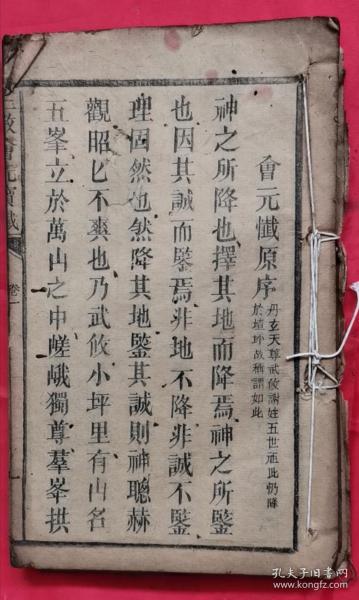 會元懺原序
丹玄天尊武攸謝姓五世祖此仍降
於壇坪故稱謂如此
神之所降也擇其地而降焉神之所鑒
也因其誠而鑒焉非地不降非誠不鑒
理固然也然降其地鑒其誠則神聰赫
觀昭匕不爽也乃武攸小坪里有山名
五峯立於萬山之中嵯峨獨尊羣峯拱
三教會元
卷一
孔夫子旧书网
book.kongfz.com